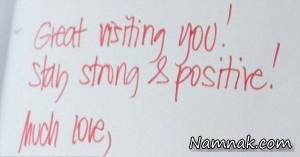 Great visiting you!
Stay strong & positive!
Much love,
Namnak.com